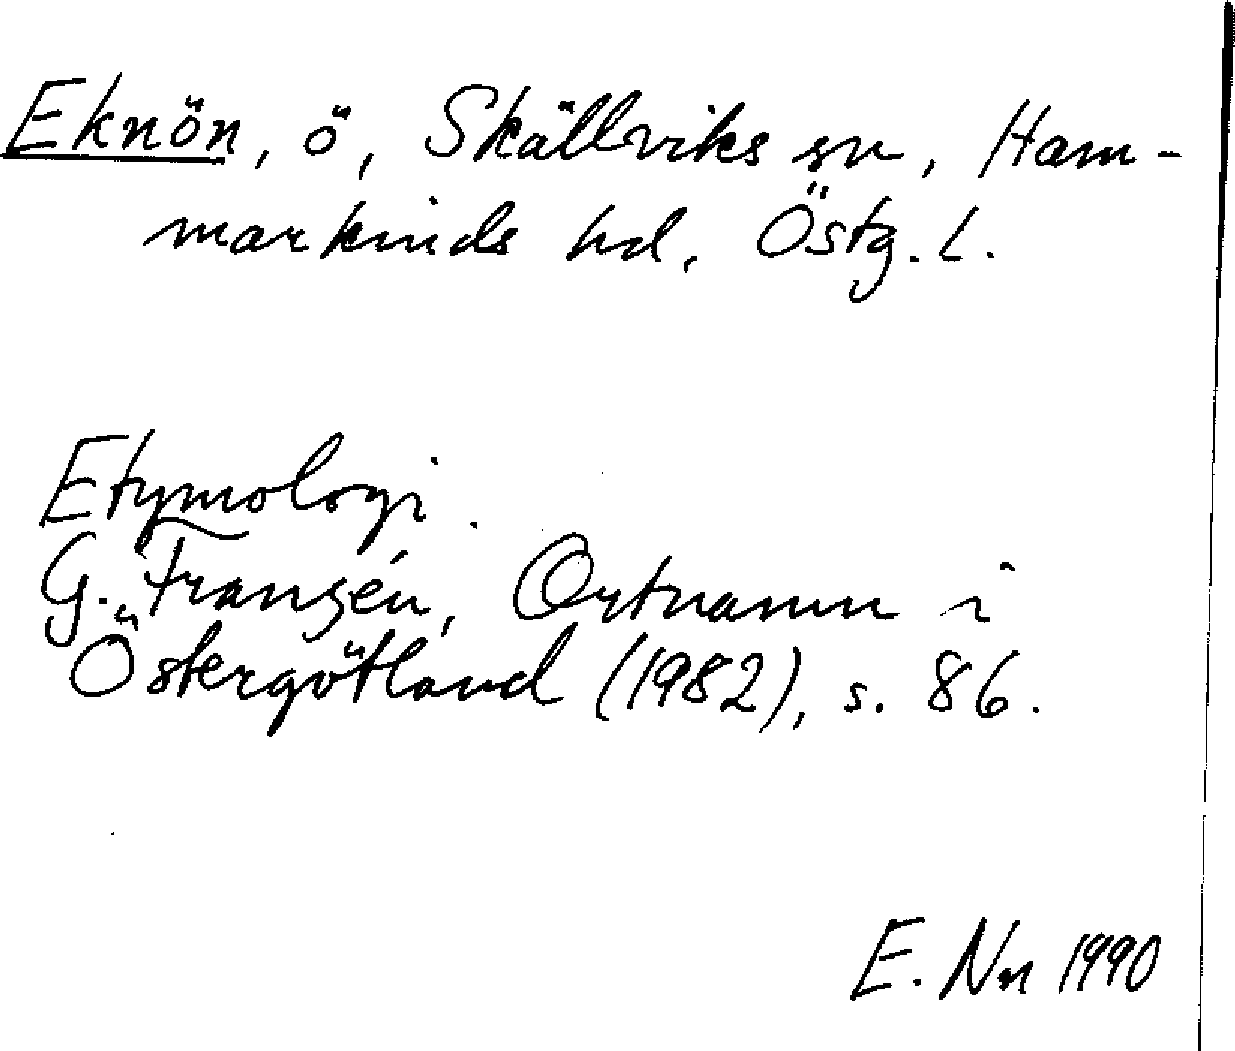 Eknön, ö, Skällviks sn, Ham-
markinds hd, Östg. l.
Etymologi.
G. Franzén, Ortnamn i
Östergötland (1982), s. 86.
E. Nn 1990